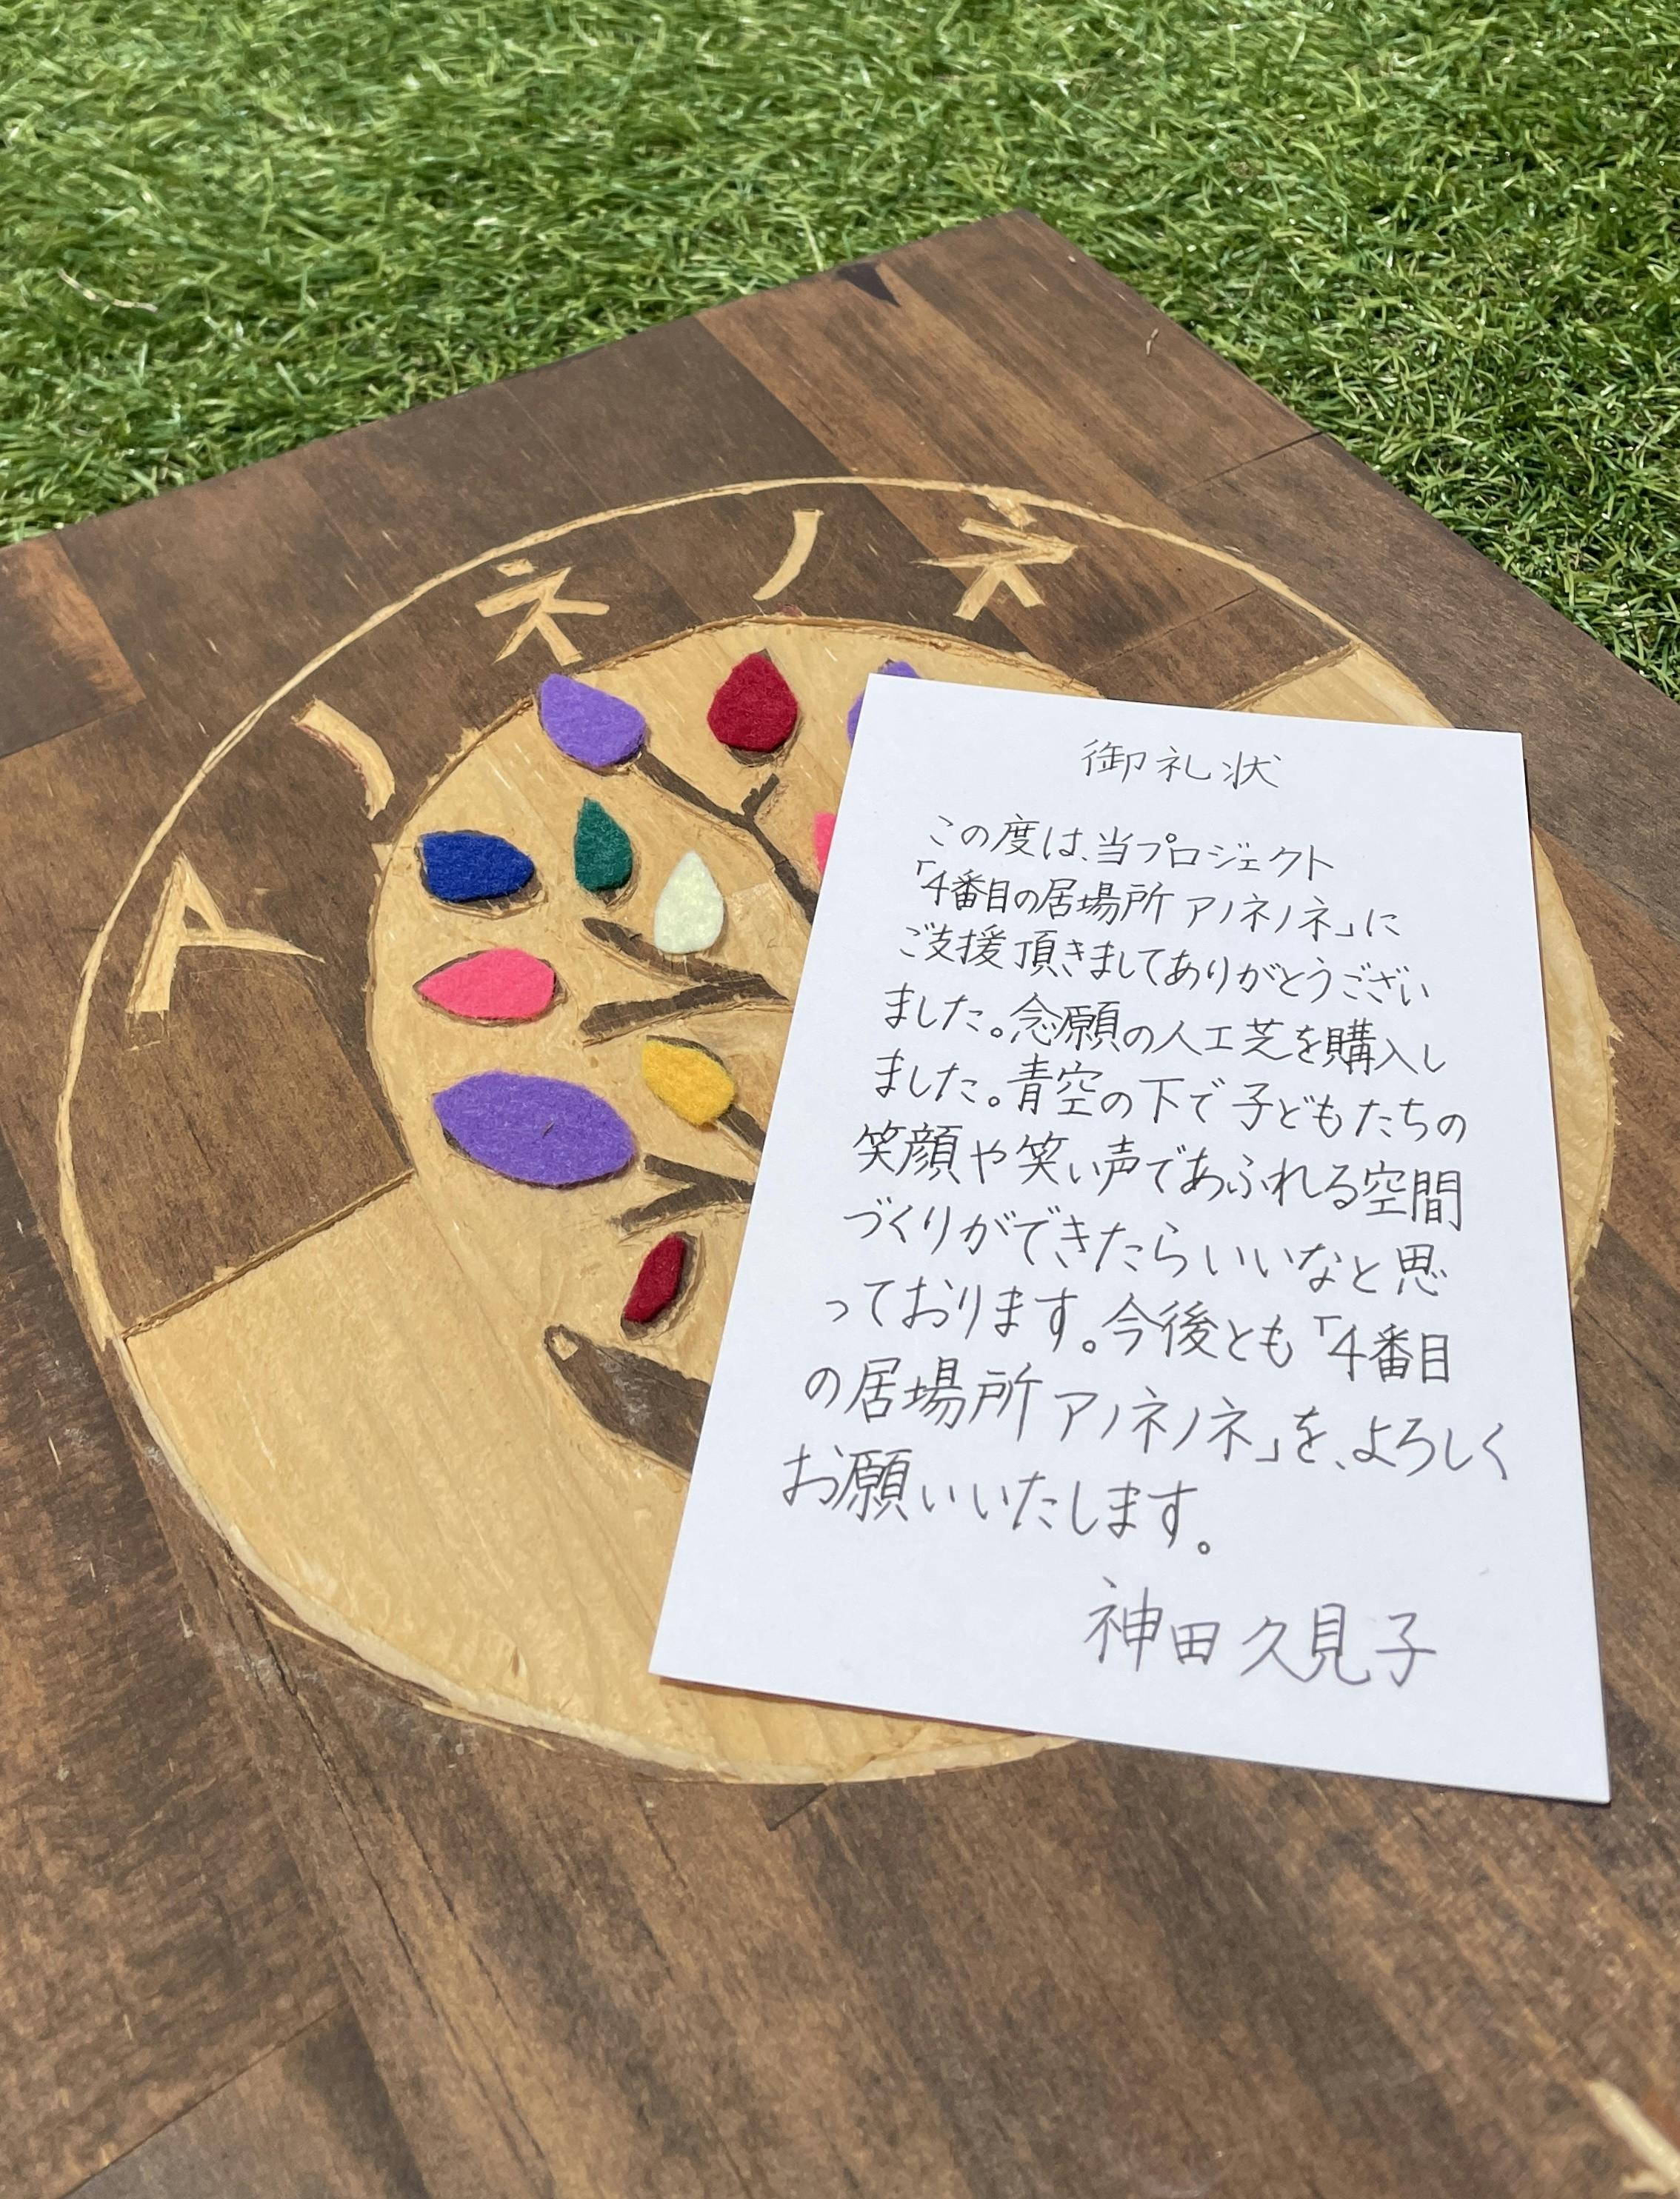 アノネノネ
御礼状
この度は、当プロジェクト
「4番目の居場所 アノネノネ」に
ご支援頂きましてありがとうござい
ました。念願の人工芝を購入し
ました。青空の下で子どもたちの
笑顔や笑い声であふれる空間
づくりができたらいいなと思
っております。今後とも「4番目
の居場所 アノネノネ」を、よろしく
お願いいたします。
神田久見子